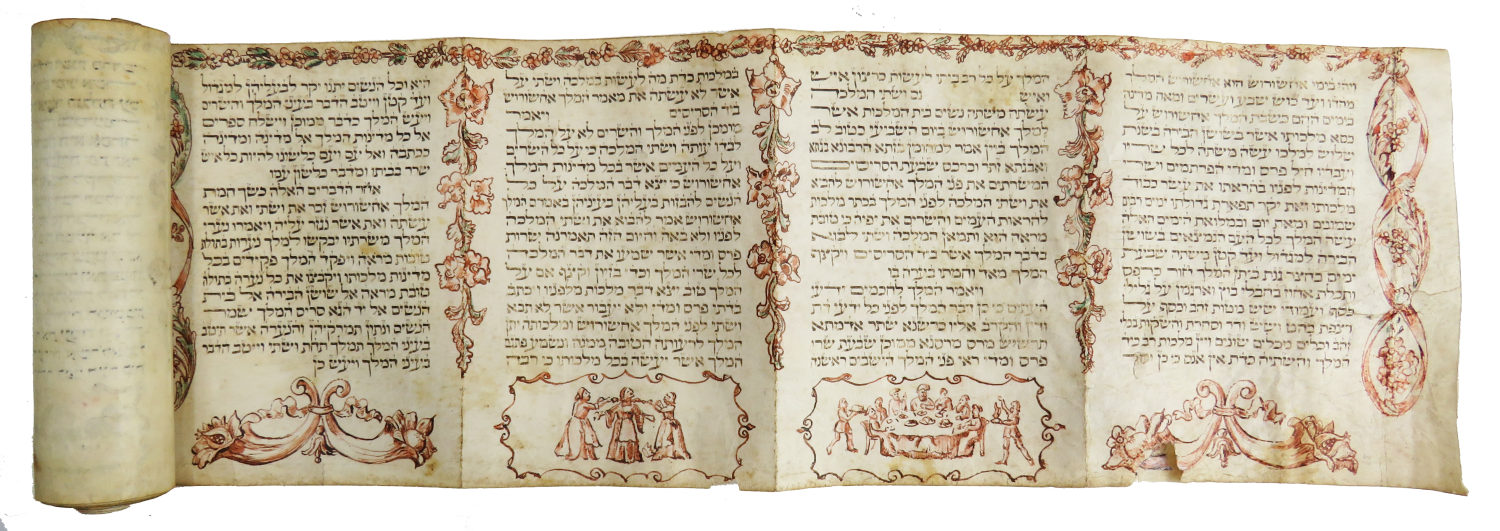 ויהי בימי אחשורוש הוא אחשורוש המלך
מהדו ועד כוש שבע ועשרים ומאה מדינה
בימים ההם כשבת המלך אחשורוש על
כסא מלכותו אשר בשושן הבירה בשנת
שלוש למלכו עשה משתה לכל שריו
ועבדיו חיל פרס ומדי הפרתמים ושרי
המדינות לפניו בהראתו את עשר כבוד
מלכותו ואת יקר תפארת גדולתו ימים רבים
שמונים ומאת יום ובמלואת הימים האלה
עשה המלך לכל העם הנמצאים בשושן
הבירה למגדול ועד קטן משתה שבעת
ימים בחצר גנת ביתן המלך חור כרפס
ותכלת אחוז בחבלי בוץ וארגמן על גלילי
כסף ועמודי שש מטות זהב וכסף על
רצפת בהט ושש ודר וסחרת והשקות בכלי
זהב וכלים מכלים שונים ויין מלכות רב כיד
המלך והשתיה כדת אין אנס כי כן יסד
המלך על כל רב ביתו לעשות כרצון איש
ואיש גם ושתי המלכה
עשתה משתה נשים בית המלכות אשר
למלך אחשורוש ביום השביעי כטוב לב
המלך ביין אמר למהומן בזתא חרבונא בגתא
ואבגתא זתר וכרכס שבעת הסריסים
המשרתים את פני המלך אחשורוש להביא
את ושתי המלכה לפני המלך בכתר מלכות
להראות העמים והשרים את יפיה כי טובת
מראה היא ותמאן המלכה ושתי לבוא
בדבר המלך אשר ביד הסריסים ויקצף
המלך מאד וחמתו בערה בו
ויאמר המלך לחכמים ידעי
העתים כי כן דבר המלך לפני כל ידעי דת
ודין והקרב אליו כרשנא שתר אדמתא
תרשיש מרס מרסנא ממוכן שבעת שרי
פרס ומדי ראי פני המלך הישבים ראשנה
במלכות כדת מה לעשות במלכה ושתי על
אשר לא עשתה את מאמר המלך אחשורוש
ביד הסריסים ויאמר
מומכן לפני המלך והשרים לא על המלך
לבדו עותה ושתי המלכה כי על כל השרים
ועל כל העמים אשר בכל מדינות המלך
אחשורוש כי יצא דבר המלכה על כל
הנשים להבזות בעליהן בעיניהן באמרם המלך
אחשורוש אמר להביא את ושתי המלכה
לפניו ולא באה והיום הזה תאמרנה שרות
פרס ומדי אשר שמעו את דבר המלכה
לכל שרי המלך וכדי בזיון וקצף אם על
המלך טוב יצא דבר מלכות מלפניו ויכתב
בדתי פרס ומדי ולא יעבור אשר לא תבא
ושתי לפני המלך אחשורוש ומלכותה יתן
המלך לרעותה הטובה ממנה ונשמע פתגם
המלך אשר יעשה בכל מלכותו כי רבה
היא וכל הנשים יתנו יקר לבעליהן למגדול
ועד קטן וייטב הדבר בעיני המלך והשרים
ויעש המלך כדבר ממוכן וישלח ספרים
אל כל מדינות המלך אל מדינה ומדינה
ככתבה ואל עם ועם כלשונו להיות כל איש
שרר בביתו ומדבר כלשון עמו
אחר הדברים האלה כשך חמת
המלך אחשורוש זכר את ושתי ואת אשר
עשתה ואת אשר נגזר עליה ויאמרו נערי
המלך משרתיו יבקשו למלך נערות בתולות
טובות מראה ויפקד המלך פקידים בכל
מדינות מלכותו ויקבצו את כל נערה בתולה
טובת מראה אל שושן הבירה אל בית
הנשים אל יד הגא סריס המלך שמר
הנשים ונתון תמרקיהן והנערה אשר תיטב
בעיני המלך תמלך תחת ושתי וייטב הדבר
בעיני המלך ויעש כן